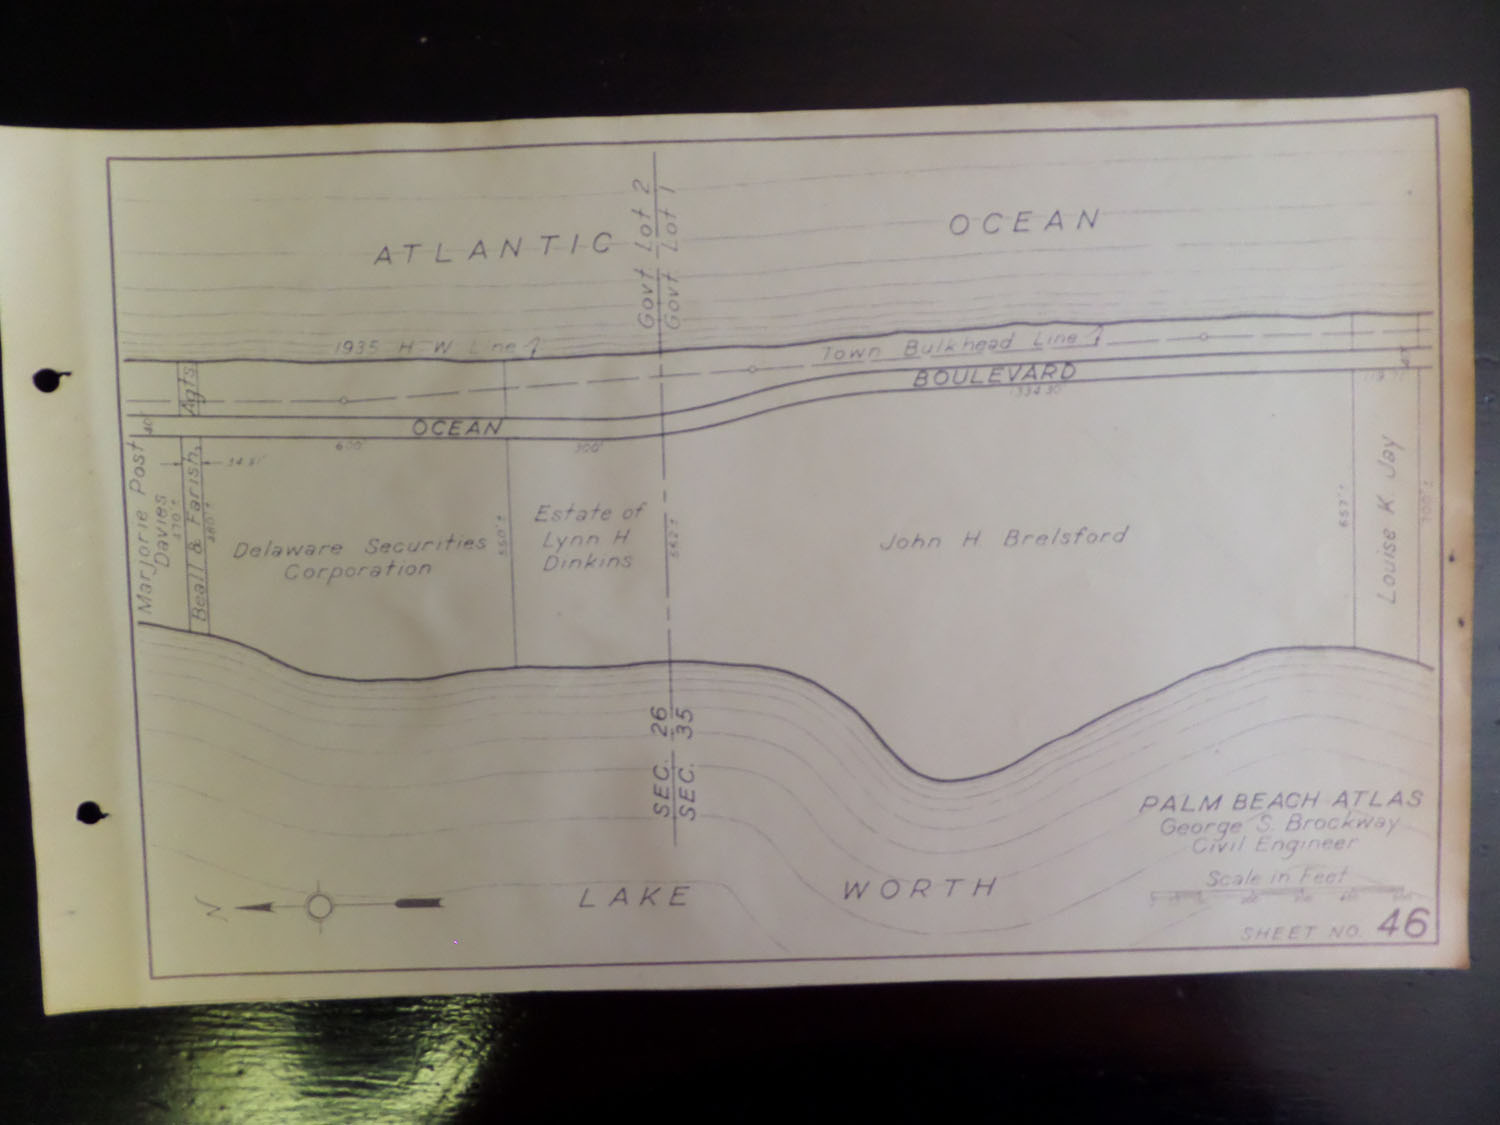 ATLANTIC OCEAN
Govt. Lot 2
Govt. Lot 1
1935 H. W. Line
Town Bulkhead Line
OCEAN BOULEVARD
600'
300'
40'
34.81'
Agts.
Marjorie Post
Davies
Beall & Farish,
Delaware Securities
Corporation
550'±
Estate of
Lynn H
Dinkins
562'±
John H Brelsford
657'±
Louise K. Jay
700'±
SEC. 26
SEC. 35
LAKE WORTH
N
PALM BEACH ATLAS
George S. Brockway
Civil Engineer
Scale in Feet
SHEET NO. 46